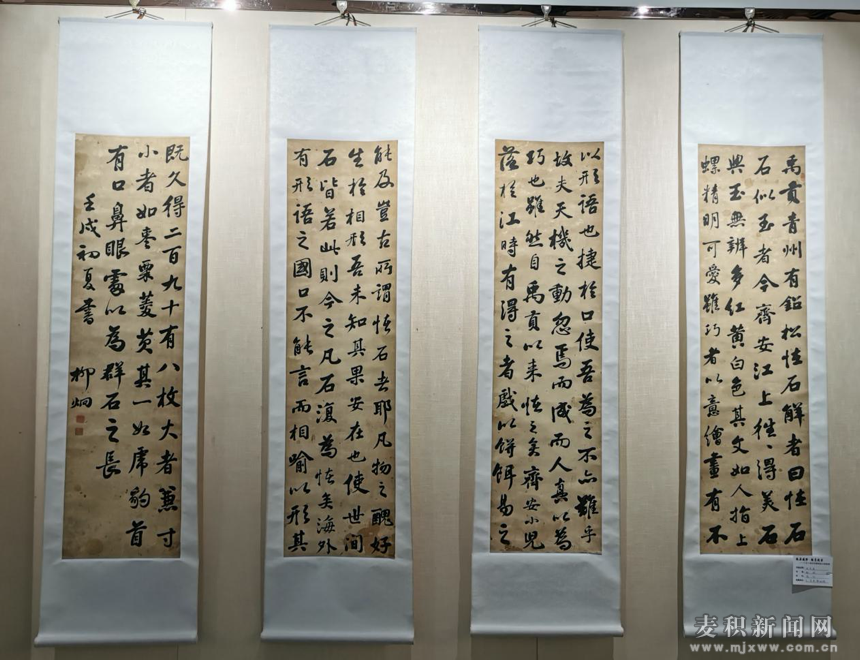 禹貢青州有鉛松怪石解者曰怪石
石似玉者今齊安江上往往得美石
與玉無辨多紅黃白色其文如人指上
螺精明可愛雖巧者以意繪畫有不
以形語也捷於口使吾為之不亦難乎
故夫天機之動忽焉而成而人真以為
巧也雖然自禹貢以來怪之矣齊安小兒
落於江時有得之者戲以餅餌易之
能及豈古所謂怪石者耶凡物之醜好
生於相形吾未知其果安在也使世間
石皆若此則今之凡石復為怪矣海外
有形語之國口不能言而相喻以形其
既久得二百九十有八枚大者兼寸
小者如棗栗菱芡其一如虎豹首
有口鼻眼處以為群石之長
壬戌初夏書
柳炯
麦积新闻网
www.mjxww.com.cn